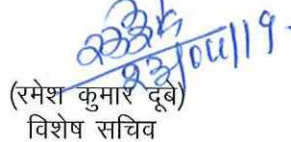 23/04/19
(रमेश कुमार दूबे)
विशेष सचिव